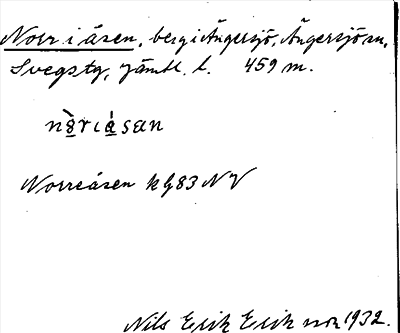 Norr i åsen, berg i Ängersjö, Ängersjö sn,
Svegs tg, Jämtl. l. 459 m.
nòrıásan
Norreåsen k bl 83 NV
Nils Erik Erik 1932.